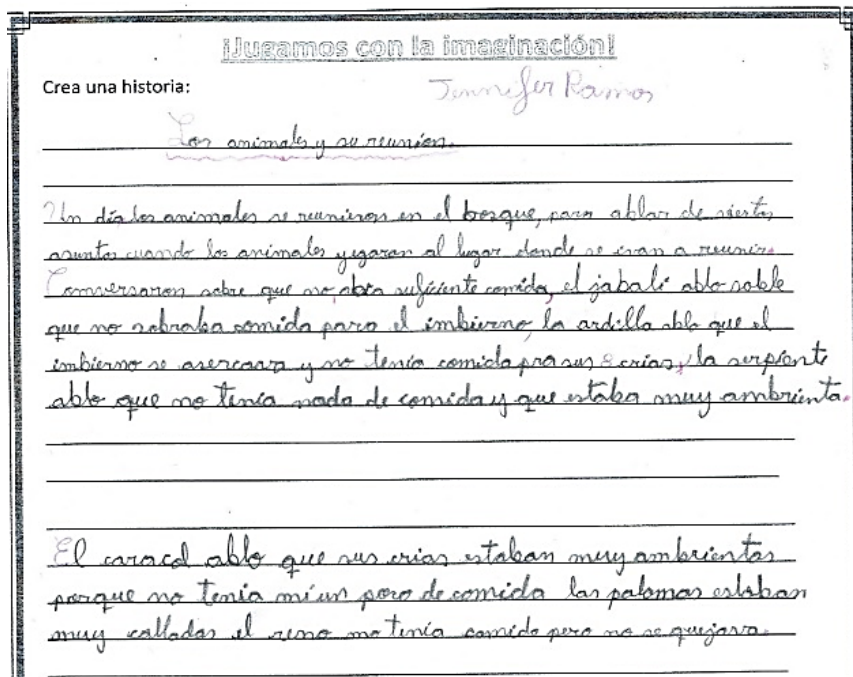 ¡Jugamos con la imaginación!
Crea una historia:
Jennifer Ramos
Los animales y su reunión.
Un día los animales se reunieron en el bosque, para ablar de siertos
asuntos cuando los animales yegaran al lugar donde se ivan a reunir.
Conversaron sobre que no abia suficiente comida, el jabalí ablo soble
que no sobraba comida para el imbierno, la ardilla ablo que el
imbierno se asercava y no tenía comida pra sus 8 crias, la serpiente
ablo que no tenía nada de comida y que estaba muy ambrienta.
El caracol ablo que sus crias estaban muy ambrientas
porque no tenia mi un poro de comida las palomas estaban
muy calladas el reno no tenía comida pero no se quejava.